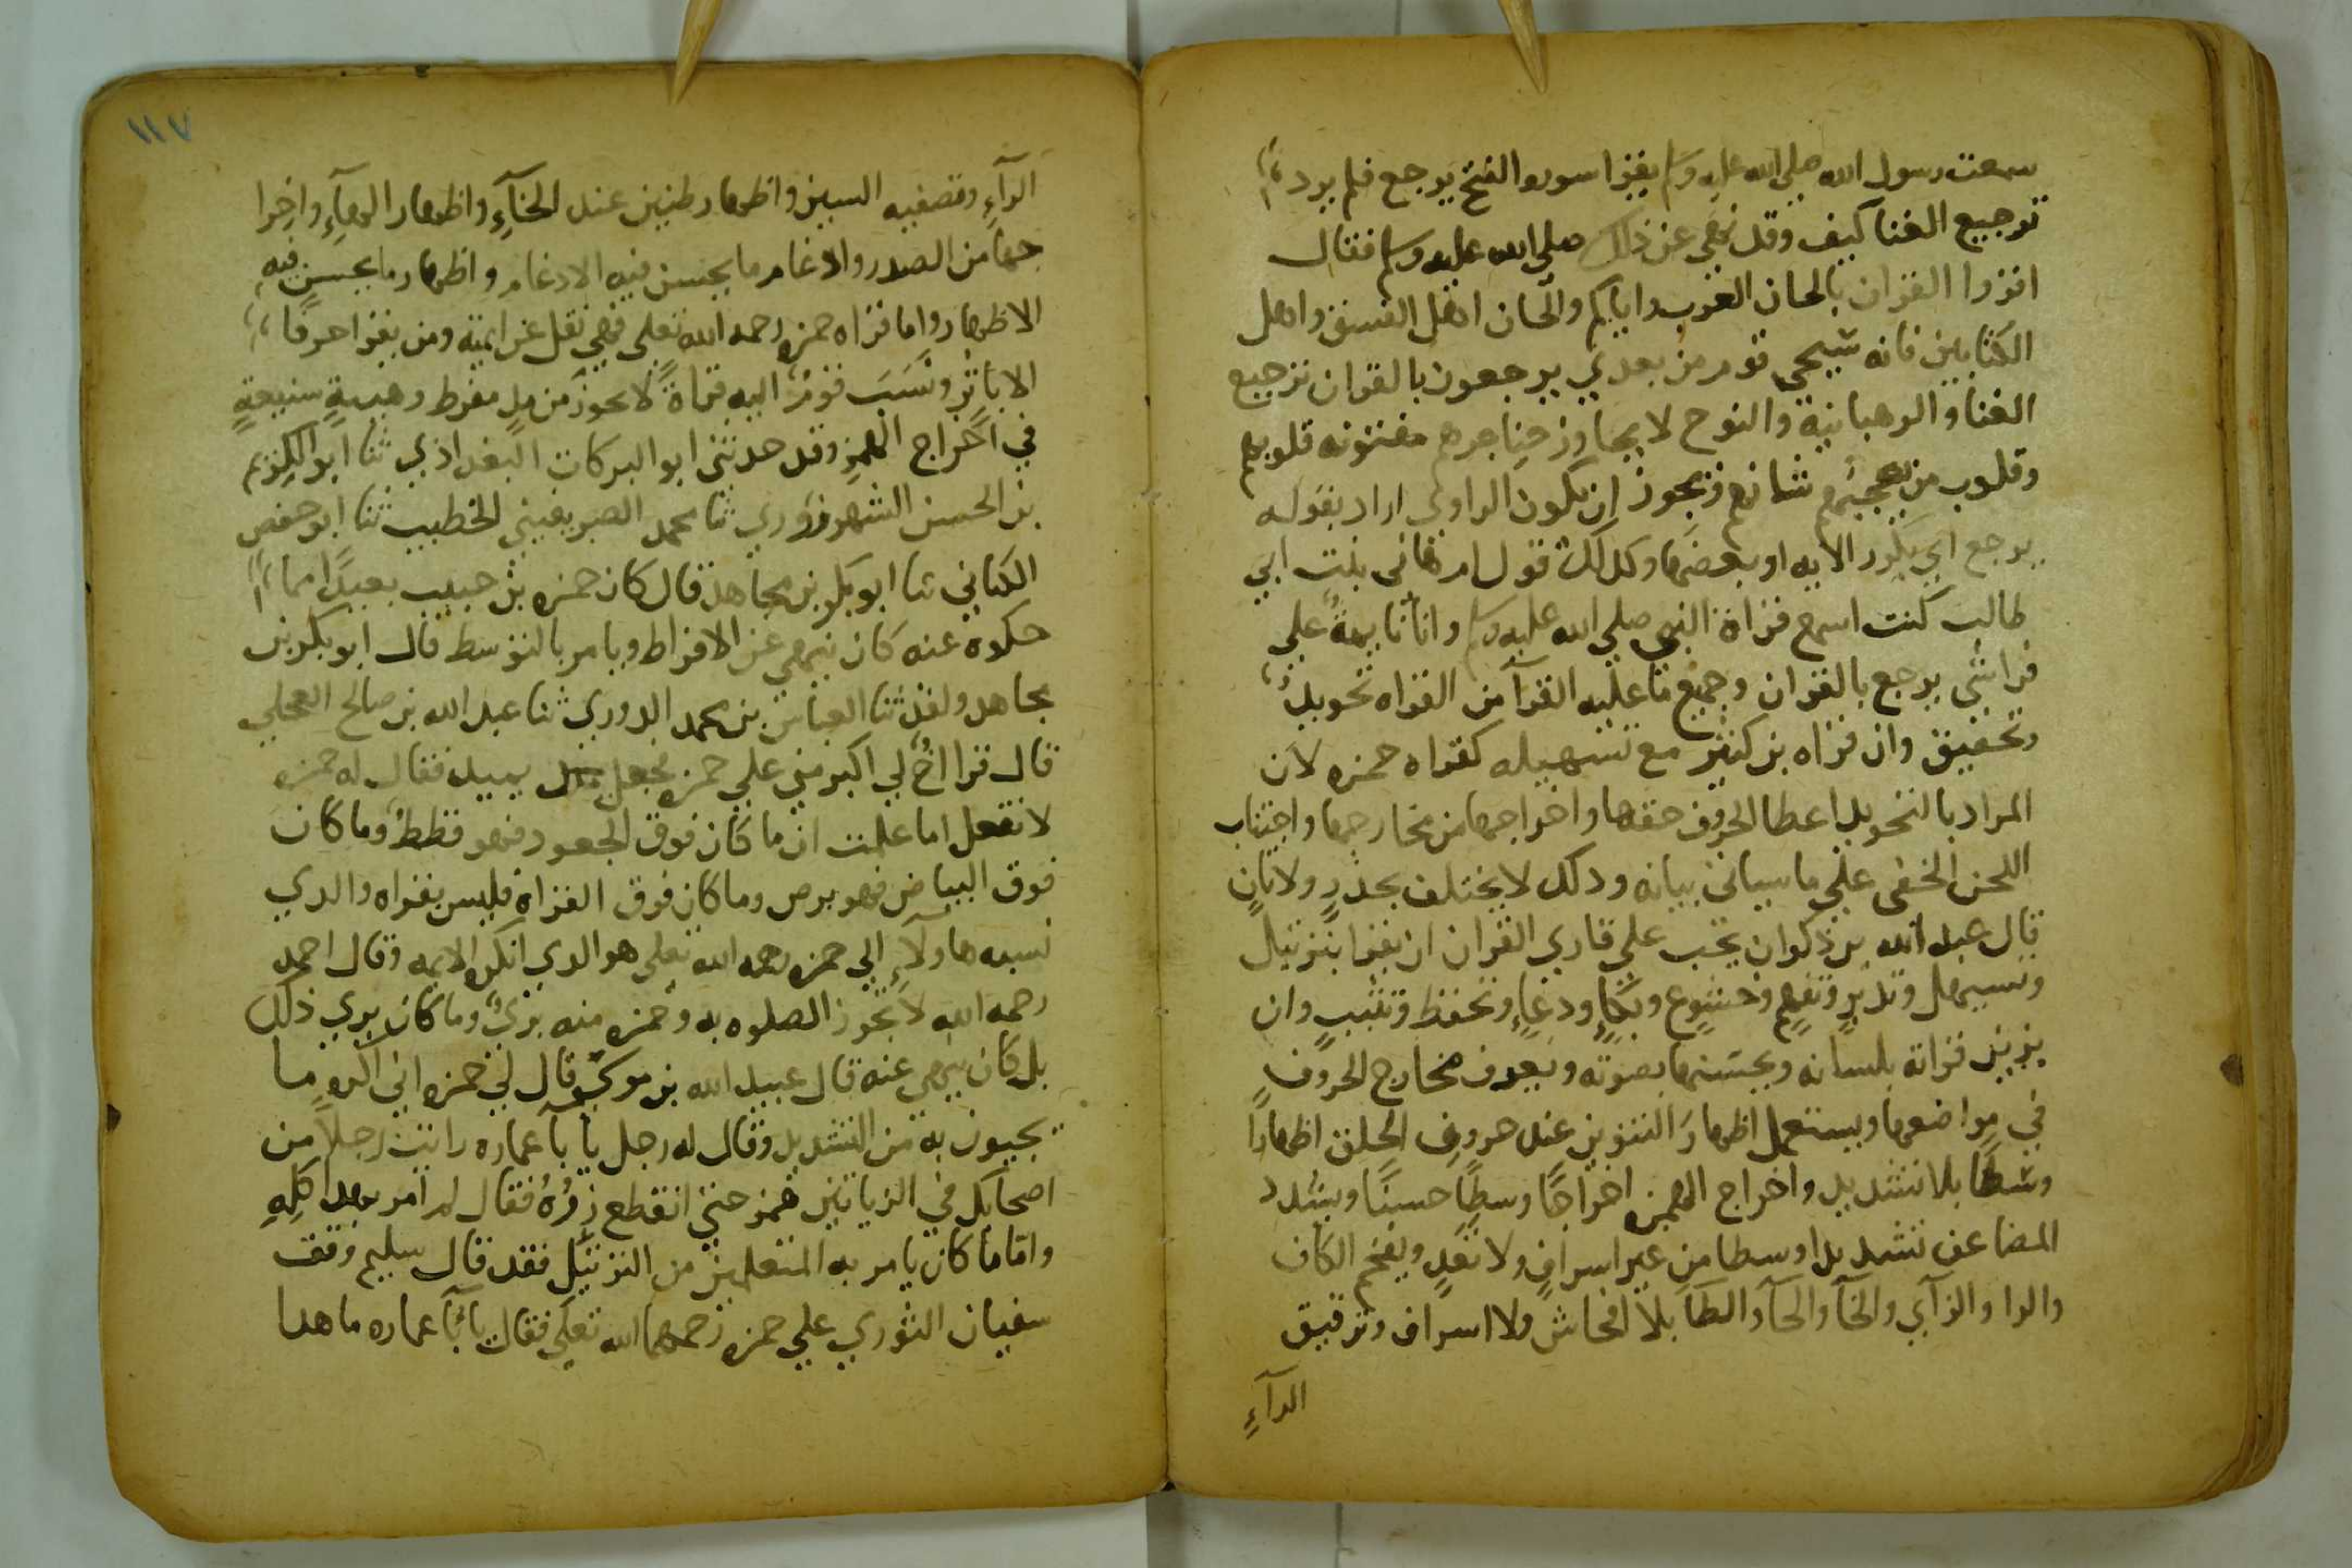 سمعت رسول الله صلي الله عليه وسلم يقرا سوره الفتح يرجع فلم يرد
ترجيع الغنا كيف وقد نهي عن ذلك صلي الله عليه وسلم فقال
اقروا القران بالحان العرب واياكم والحان اهل الفسق واهل
الكتابين فانه سيجي قوم من بعدي يرجعون بالقران ترجيع
الغنا والرهبانية والنوح لا يجاوز حناجرهم مفتونه قلوبهم
وقلوب من يعجبهم شانهم ويجوز ان يكون الراوي اراد بقوله
يرجع اي يكرر الايه او بعضها وكذلك قول ام هاني بنت ابي
طالب كنت اسمع قراة النبي صلي الله عليه وسلم وانا نايمة علي
فراشي يرجع بالقران وجميع ما عليه القرآ من القراه تجويد
وتحقيق وان قراه بن كثير مع تسهيله كقراه حمزه لان
المراد بالتجويد اعطا الحروف حقها واخراجها من مخارجها واجتناب
اللحن الخفي علي ما سياتي بيانه وذلك لا يختلف بحدر ولا تان
قال عبد الله بن ذكوان يجب علي قاري القران ان يقرا بترتيل
وتسهل وتدبر وتفهم وخشوع وبكاء ودعاء وتحفظ وتثبت وان
يزين قراته بلسانه ويحسنها بصوته ويعرف مخارج الحروف
في مواضعها ويستعمل اظهار التنوين عند حروف الحلق اظهارا
وسطا بلا تشديد واخراج الهمزه اخراجا وسطا حسنا ويشدد
المضاعف تشديدا وسطا من غير اسراف ولا تعد ويفخم الكاف
والرا والزآي والخآ والحآ والطآ بلا افحاش ولا اسراف وترقيق
الرآء
١١٧
الرآء وتصفيه السين واظهار طنين عند الخآء واظهار الهآء واخرا
جها من الصدر وادغام ما يحسن فيه الادغام واظهار ما يحسن فيه
الاظهار واما قراه حمزه رحمه الله تعلي فهي نقل عن ايمته ومن يقرا حرفا
الا باثر ونسب قوم اليه قراة لا تجوز من مد مفرط وهيية شنيعة
في اخراج الهمز وقد حدثني ابو البركات البغداذي ثنا ابو الكرم
بن الحسن الشهرزوري ثنا محمد الصريفيني الخطيب ثنا ابو حفص
الكتاني ثنا ابو بكر بن مجاهد قال كان حمزه بن حبيب بعيدا مما
حكوه عنه كان ينهي عن الافراط ويامر بالتوسط قال ابو بكر بن
مجاهد ولقد ثنا العباس بن محمد الدوري ثنا عبد الله بن صالح العجلي
قال قرا اخ لي اكبر مني علي حمزه فجعل يميد فقال له حمزه
لا تفعل اما علمت ان ما كان فوق الجعود فهو قطط وما كان
فوق البياض فهو برص وما كان فوق القراة فليس بقراه والذي
نسبه هاولآء الي حمزه رحمه الله تعلي هو الذي انكره الايمه وقال احمد
رحمه الله لا تجوز الصلوه به وحمزه منه بري وما كان يري ذلك
بل كان ينهي عنه قال عبيد الله بن موسي قال لي حمزه اني اكره ما
يجيون به من التشديد وقال له رجل يا با عماره رايت رجلا من
اصحابك في الزياتين همز حتي انقطع زره فقال لم امر بهذا كله
واما ما كان يامر به المتعلمين من الترتيل فقد قال سليم وقف
سفيان الثوري علي حمزه رحمهما الله تعلي فقال يا با عماره ما هذا